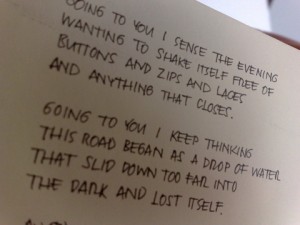 GOING TO YOU I SENSE THE EVENING
WANTING TO SHAKE ITSELF FREE OF
BUTTONS AND ZIPS AND LACES
AND ANYTHING THAT CLOSES.
GOING TO YOU I KEEP THINKING
THIS ROAD BEGAN AS A DROP OF WATER
THAT SLID DOWN TOO FAR INTO
THE DARK AND LOST ITSELF.